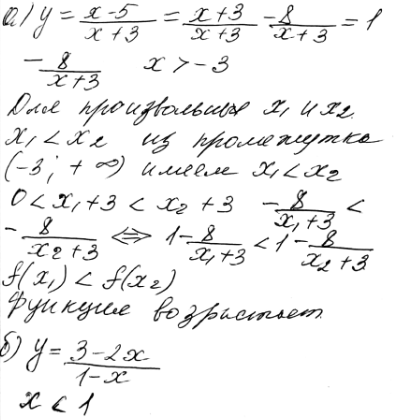 а) y = \frac{x-5}{x+3} = \frac{x+3}{x+3} - \frac{8}{x+3} = 1
- \frac{8}{x+3}   x > -3
Для произвольных x₁ и x₂
x₁ < x₂ из промежутка
(-3; +∞) имеем x₁ < x₂
0 < x₁+3 < x₂+3   - \frac{8}{x₁+3} <
- \frac{8}{x₂+3} ⇔ 1 - \frac{8}{x₁+3} < 1 - \frac{8}{x₂+3}
f(x₁) < f(x₂)
Функция возрастает
б) y = \frac{3-2x}{1-x}
x < 1